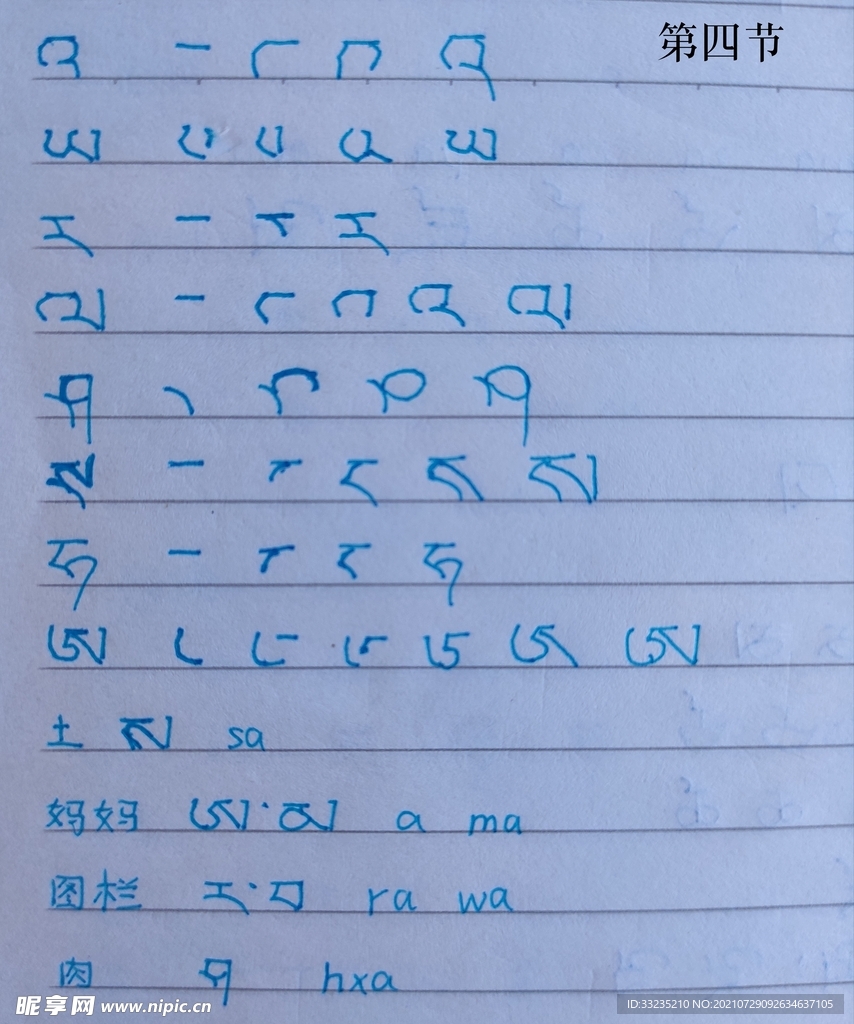 第四节
འ འ
ཡ ཡ
ར ར
ལ ལ
ཤ ཤ
ས ས
ཧ ཧ
ཨ ཨ
土 ས sa
妈妈 ཨ་མ a ma
图栏 ར་བ ra wa
肉 ཤ hxa
昵享网 www.nipic.cn
ID:33235210 NO:20210729092634637105